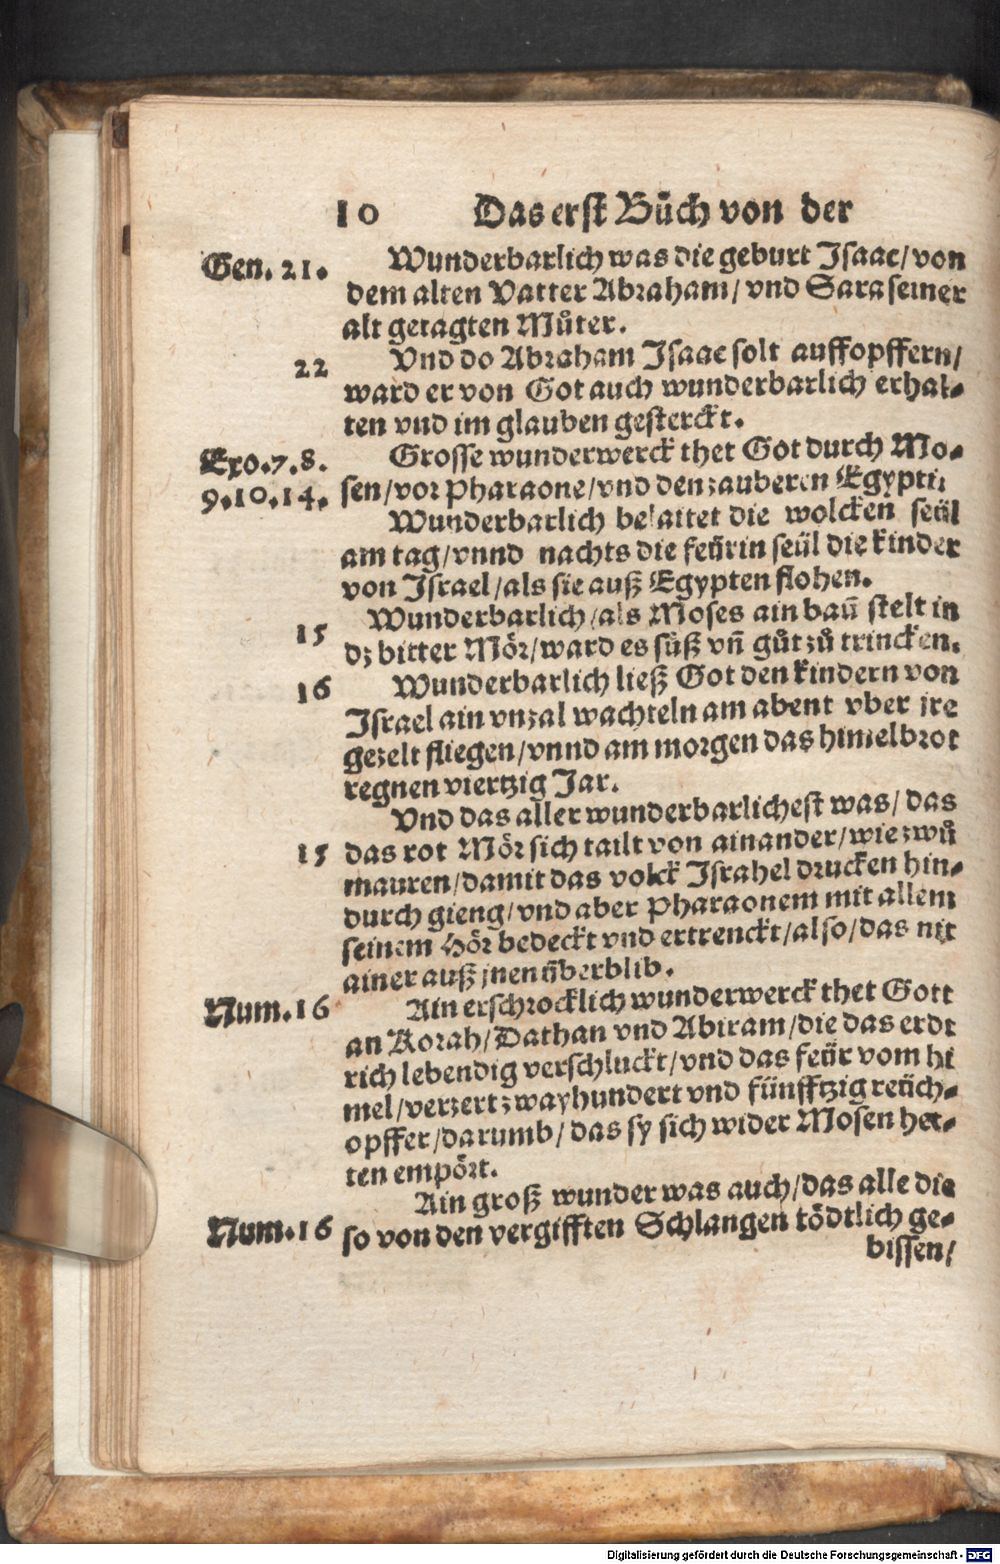 10 Das erst Bůch von der
Gen. 21. Wunderbarlich was die geburt Isaac/von
dem alten Vatter Abraham/ vnd Sara seiner
alt getagten Můter.
22 Vnd do Abraham Isaac solt auffopffern/
ward er von Got auch wunderbarlich erhal-
ten vnd im glauben gesterckt.
Exo.7.8. Grosse wunderwerck thet Got durch Mo-
9.10.14. sen/vor Pharaone/vnd den zauberen Egypti
Wunderbarlich belaitet die wolcken seül
am tag/vnnd nachts die feürin seül die kinder
von Israel/als sie auß Egypten flohen.
15 Wunderbarlich/als Moses ain baum̄ stelt in
dz bitter Mör/ward es süß vn̄ gůt zů trincken.
16 Wunderbarlich ließ Got den kindern von
Israel ain vnzal wachteln am abent vber jre
gezelt fliegen/vnnd am morgen das himelbrot
regnen viertzig Jar.
Vnd das aller wunderbarlichest was/das
15 das rot Mör sich tailt von ainander/wie zwů
mauren/damit das volck Israhel drucken hin-
durch gieng/vnd aber Pharaonem mit allem
seinem Hör bedeckt vnd ertrenckt/also/das nit
ainer auß jnen überblib.
Num.16 Ain erschrocklich wunderwerck thet Gott
an Korah/Dathan vnd Abiram/die das erdt
rich lebendig verschluckt/vnd das feür vom hi
mel/verzert zwayhundert vnd fünfftzig reüch-
opffer/darumb/das sy sich wider Mosen het-
ten empört.
Ain groß wunder was auch/das alle die
Num.16 so von den vergifften Schlangen tödtlich ge-
bissen/
Digitalisierung gefördert durch die Deutsche Forschungsgemeinschaft - DFG